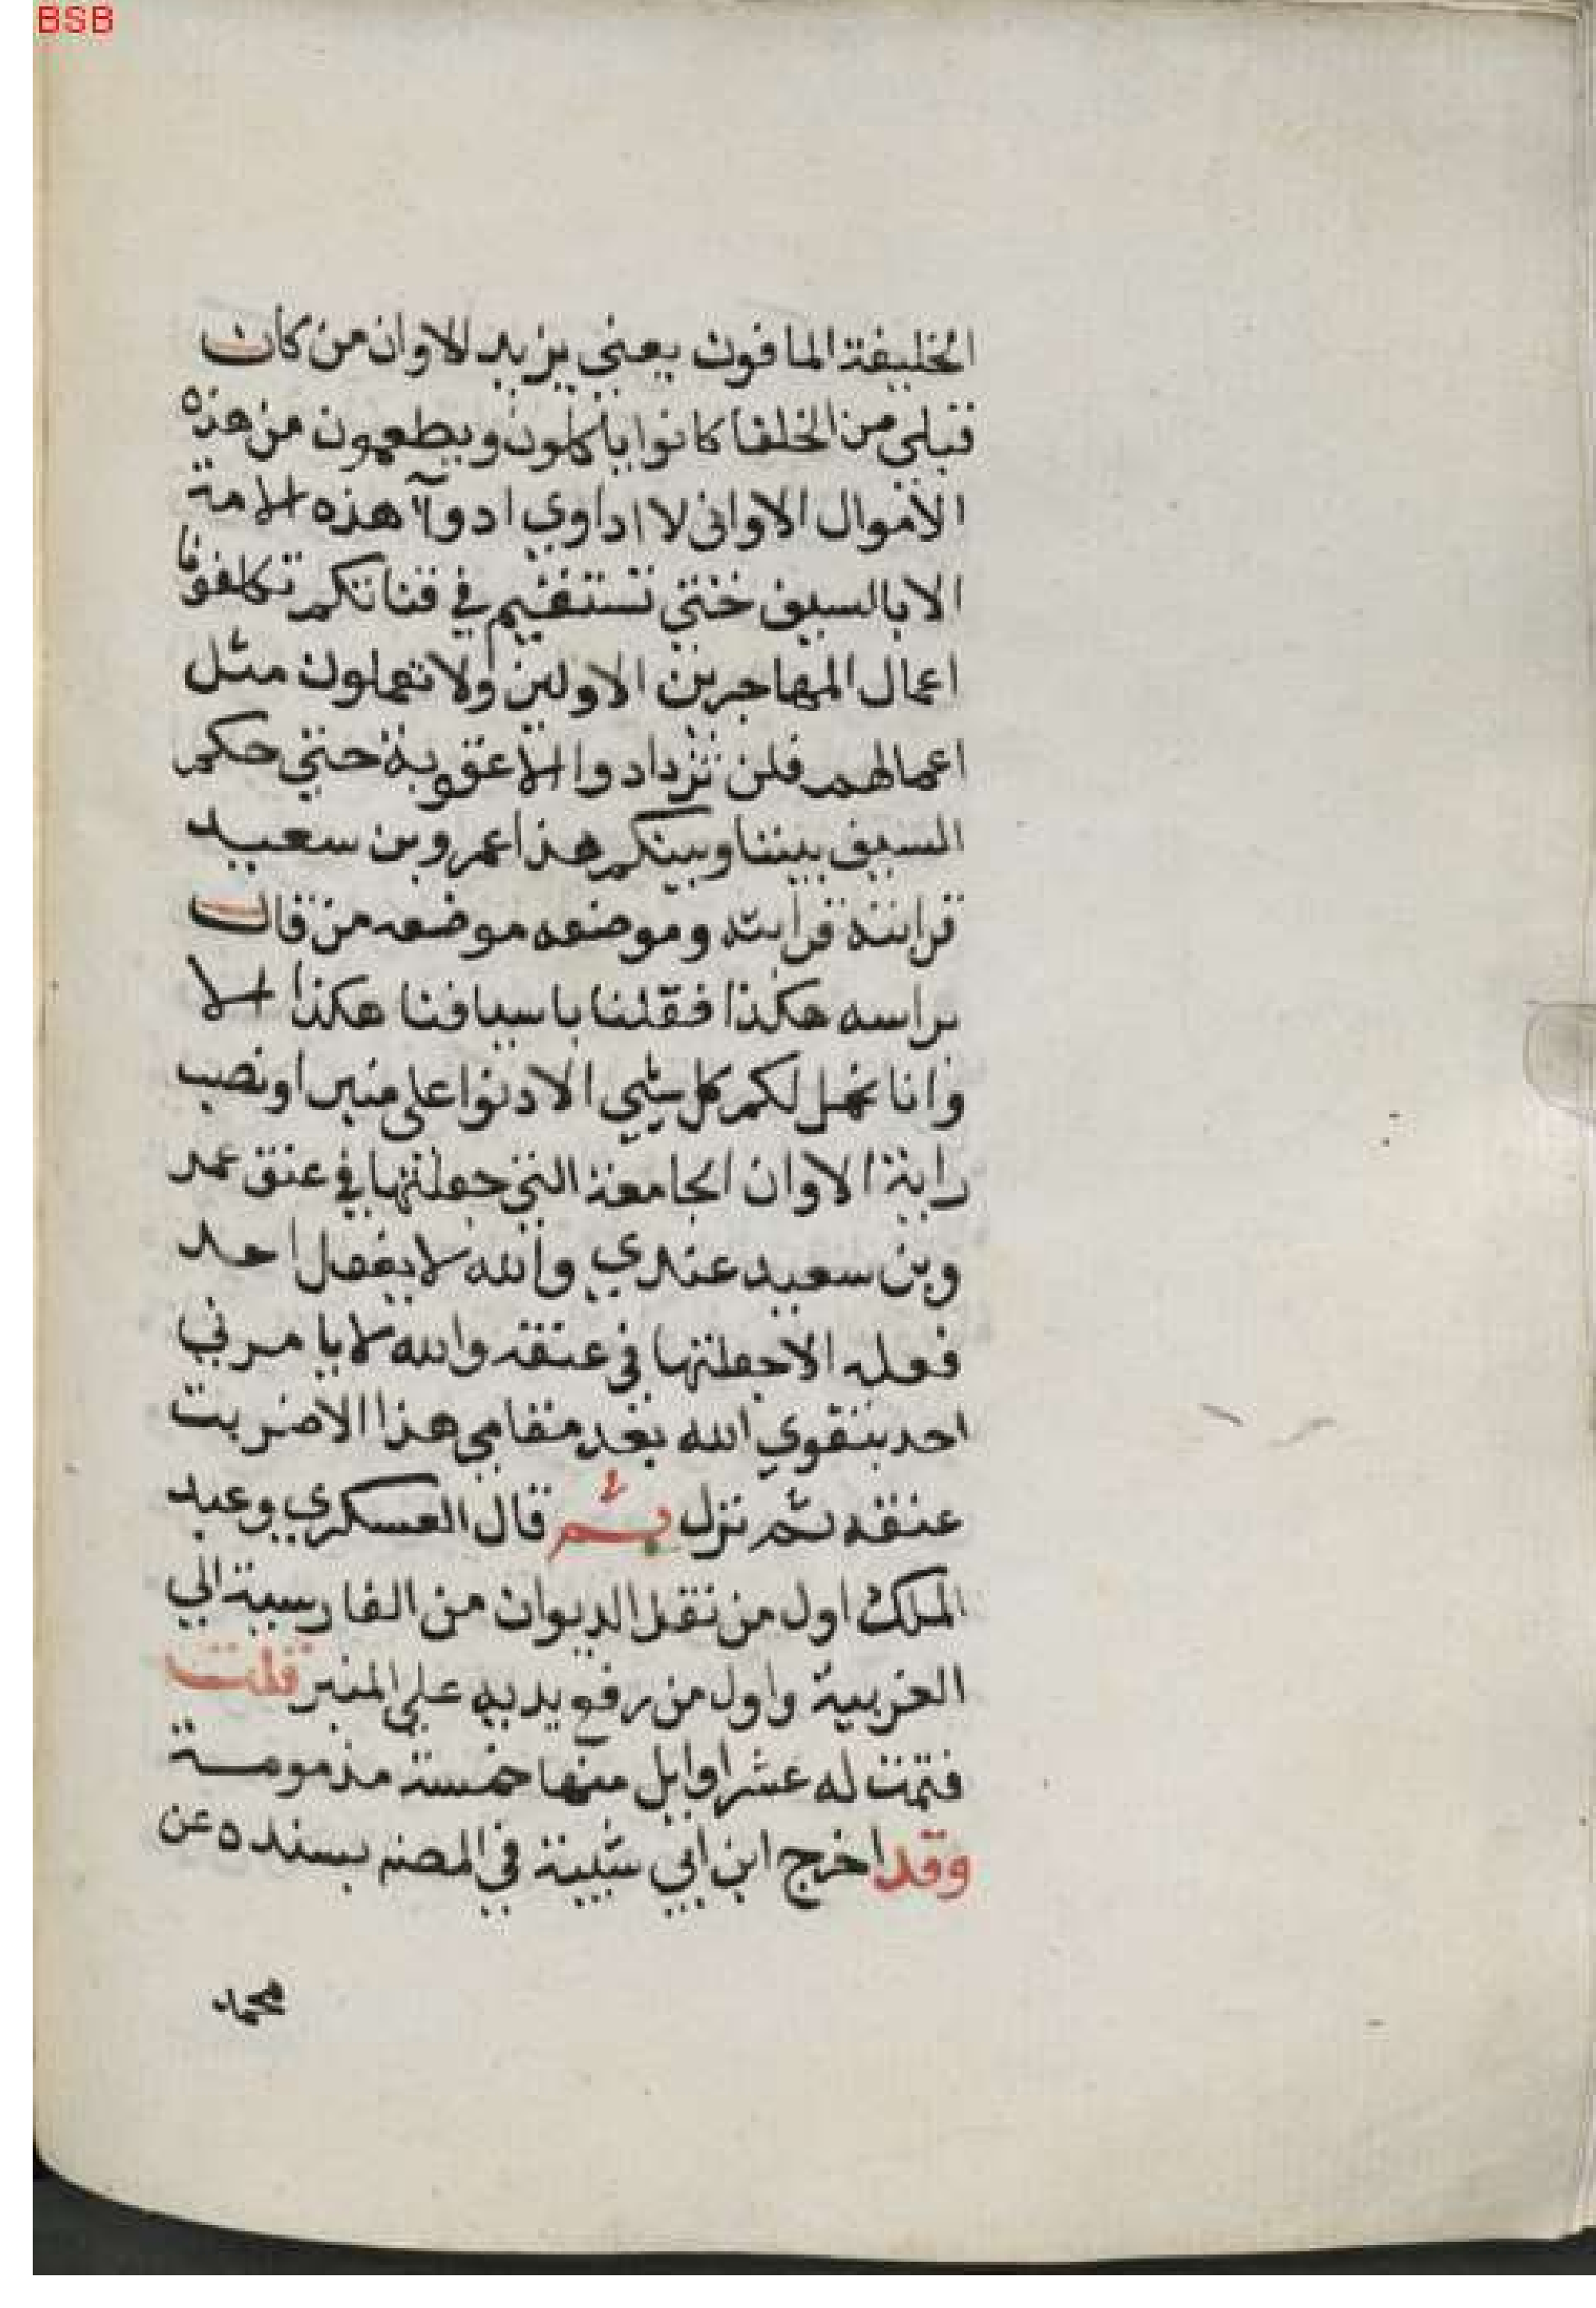 BSB
الخليفة المافون يعني يزيد الاوان من كان
قبلي من الخلفا كانوا ياكلون ويطعمون من هذه
الاموال الاواني لا اداوي ادوآ هذه الامة
الا بالسيف ختي تستقيم في قناتكم تكلفونا
اعمال المهاجرين الاولين ولا تعملون مثل
اعمالهم فلن تزدادوا الا عقوبة حتي حكم
السيف بيننا وبينكم هذا عمرو بن سعيد
قرابته قرابته وموضعه موضعه من قال
براسه هكذا فقلنا باسيافنا هكذا الا
وانا نحمل لكم كل شيي الا دنوا علي منبر او نصب
راية الاوان الجامعة التي جعلتها في عنق عمد
وبن سعيد عندي والله لا يفعل احد
فعله الا جعلتها في عنقه والله لا يا مرني
احد بتقوي الله بعد مقامي هذا الا ضربت
عنقه ثم نزل ثم قال العسكري وعبد
الملك اول من نقل الديوان من الفارسية الي
العربية واول من رفع يديه علي المنبر قلت
فتمت له عشر اوايل منها خمسة مذمومة
وقد اخرج ابن ابي شيبة في المصنم بسنده عن
محمد